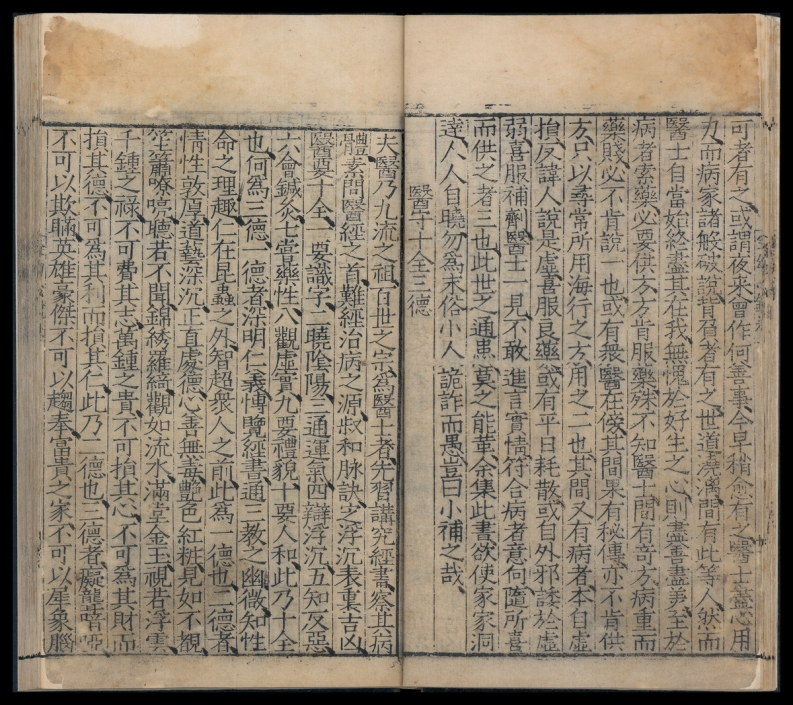 可者有之或謂夜來曾作何善事今早稍愈有之醫士盡心用
力而病家諸般破說背召者有之世道澆漓間有此等人然而
醫士自當始終盡其在我無愧於好生之心則盡善盡美至於
病者索藥必要供方方肯服藥殊不知醫士間有奇方病重而
藥賤必不肯說一也或有衆醫在傍其間果有秘傳亦不肯供
方只以尋常所用海行之方用之二也其間又有病者本自虛
損反諱人說是虛喜服良藥或有平日耗散或自外邪諉於虛
弱喜服補劑醫士一見不敢進言實情符合病者意向隨所喜
而供之者三也此世之通患莫之能革余集此書欲使家家洞
達人人自曉勿爲末俗小人詭詐而愚豈曰小補之哉
醫士十全三德
夫醫乃九流之祖百世之宗爲醫士者先習講究經書察其病
體素問醫經之首難經治病之源叔和脉訣之浮沉表裏吉凶
醫要十全一要識字二曉陰陽三通運氣四辯浮沉五知反惡
六會鍼灸七嘗藥性八觀虛實九要禮貌十要人和此乃十全
也何爲三德一德者深明仁義博覽經書通三教之幽微知性
命之理趣仁在昆蟲之外智超衆人之前此爲一德也二德者
情性敦厚道藝深沉正直處德心善無毒艶色紅粧見如不覩
笙簫嘹喨聽若不聞錦綉羅綺觀如流水滿堂金玉視若浮雲
千鍾之祿不可費其志萬鍾之貴不可損其心不可爲其財而
損其德不可爲其利而損其仁此乃二德也三德者癡龍瘖啞
不可以欺瞞英雄豪傑不可以趨奉富貴之家不可以星象腦